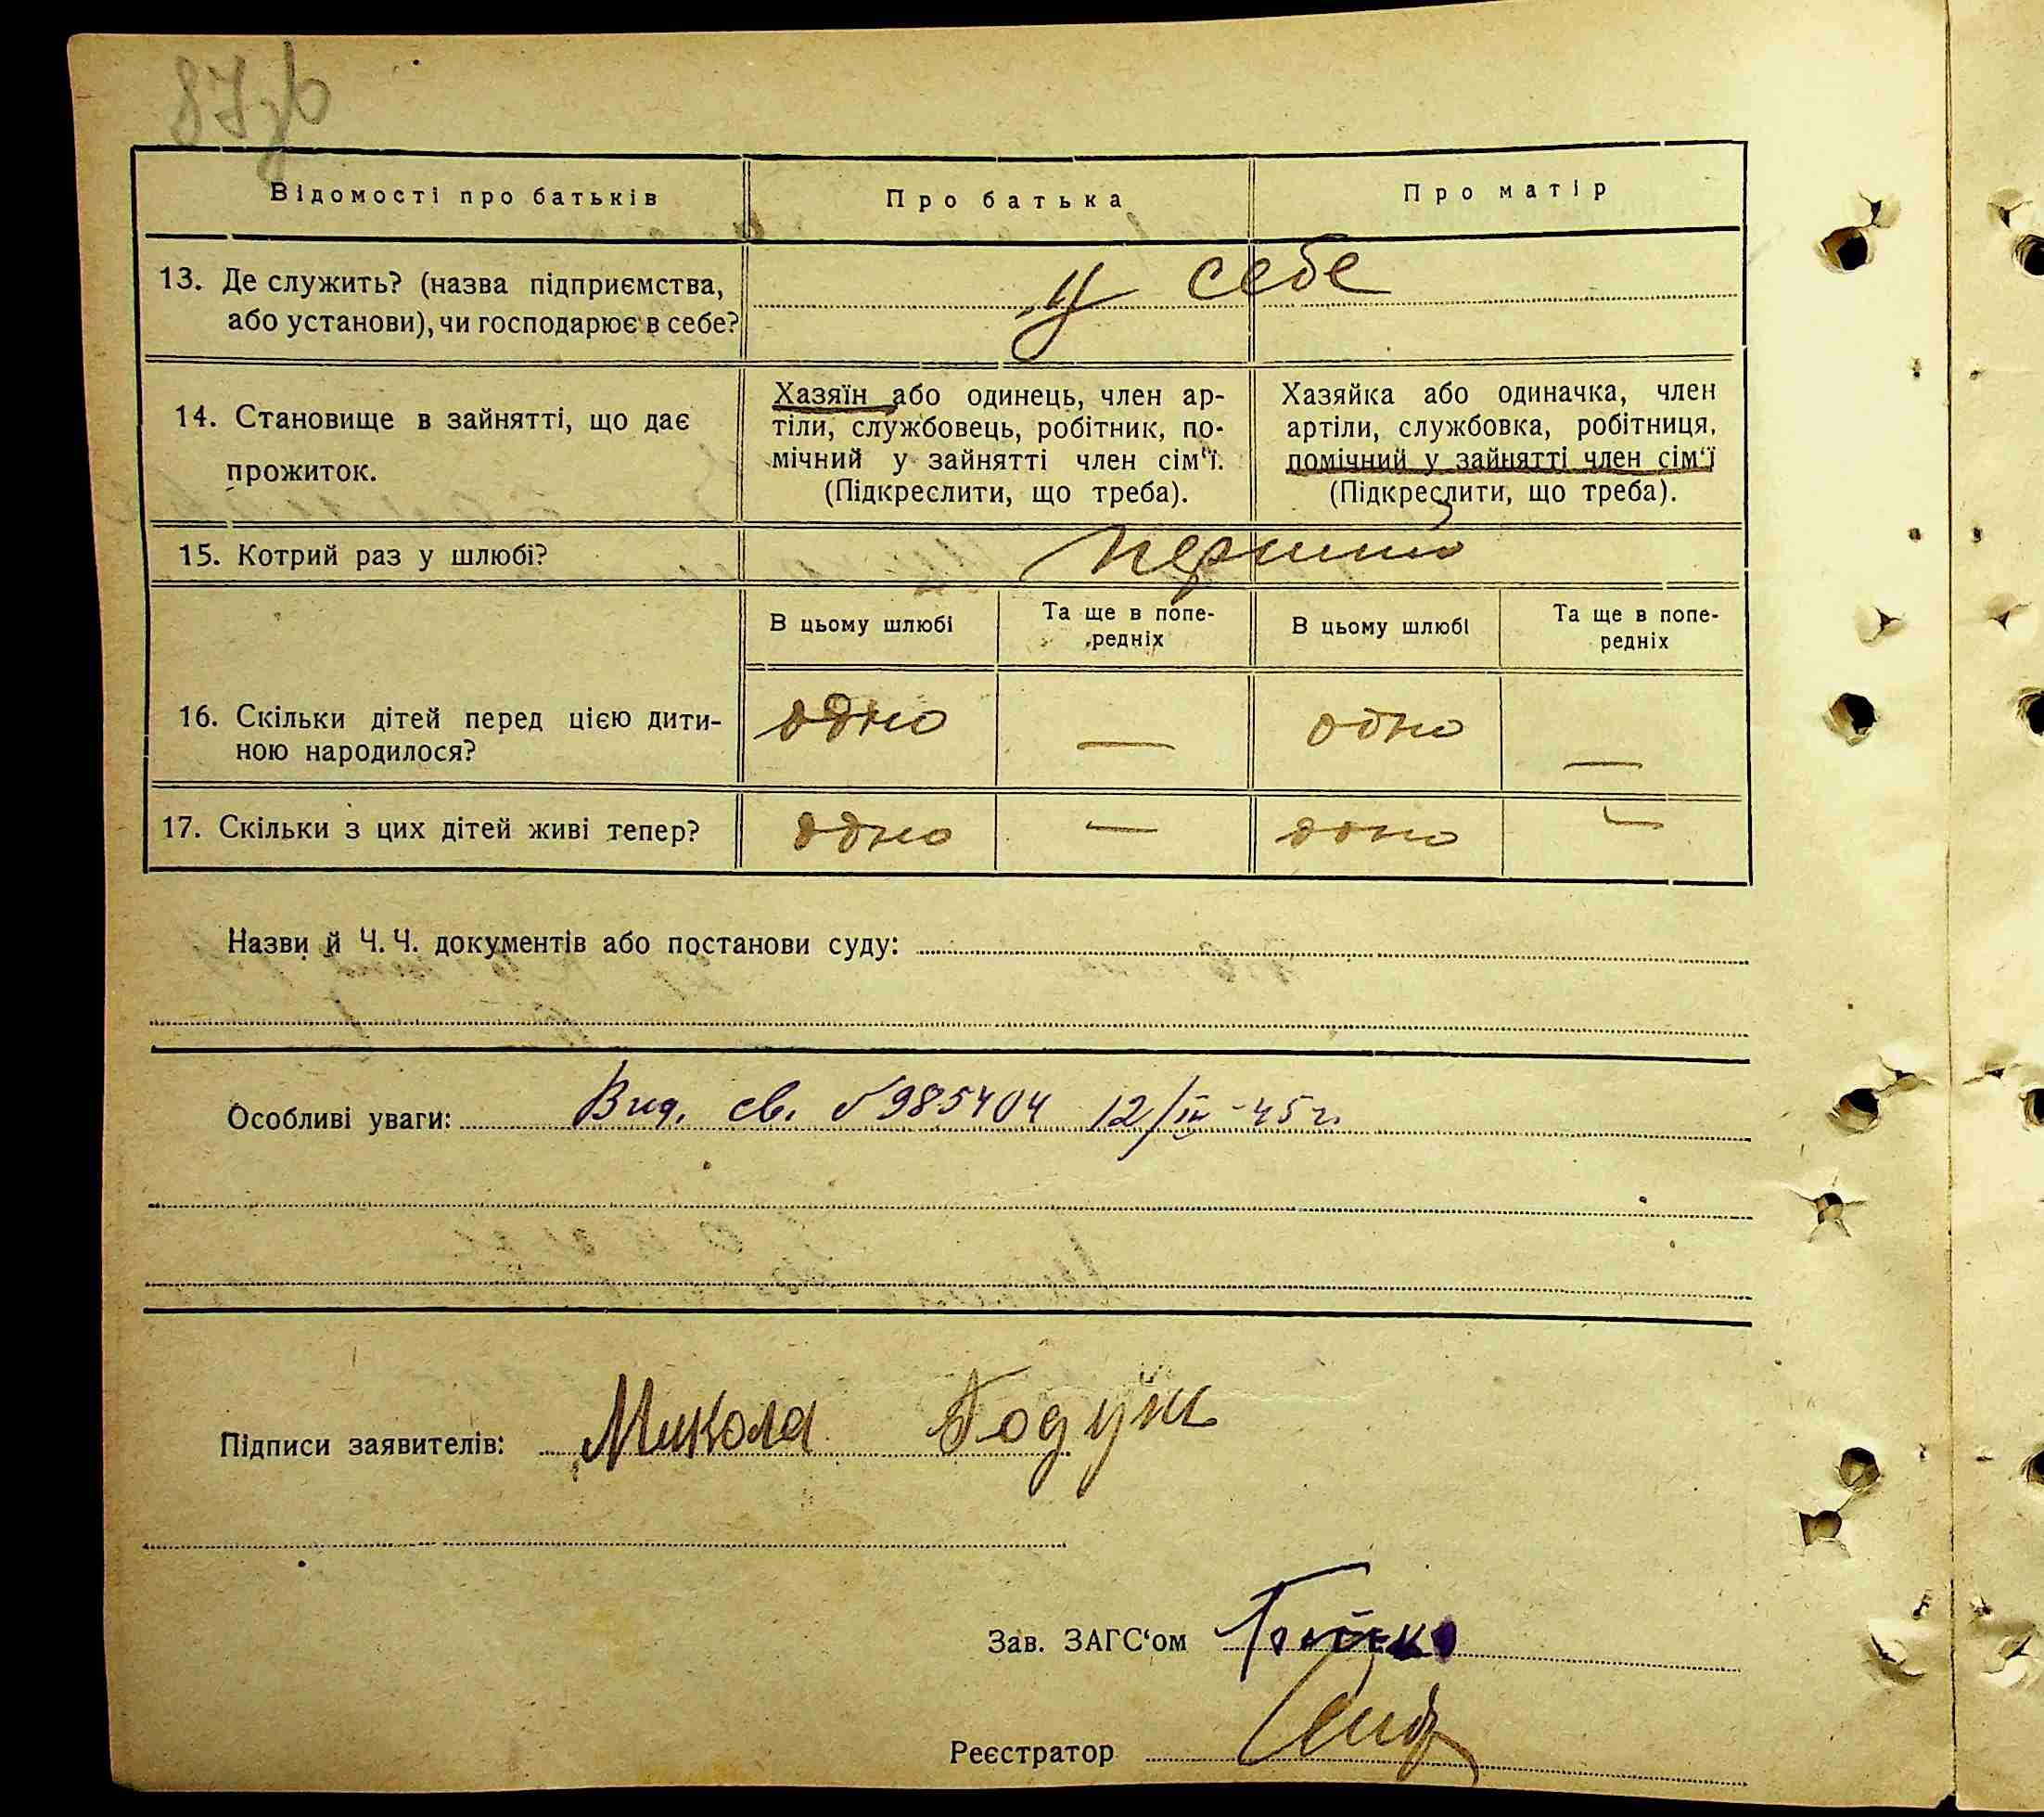 87зв
Відомості про батьків
Про батька
Про матір
13. Де служить? (назва підприємства,
або установи), чи господарює в себе?
у себе
14. Становище в зайнятті, що дає
прожиток.
Хазяїн або одинець, член ар-
тіли, службовець, робітник, по-
мічний у зайнятті член сім'ї.
(Підкреслити, що треба).
Хазяйка або одиначка, член
артіли, службовка, робітниця,
помічний у зайнятті член сім'ї
(Підкреслити, що треба).
15. Котрий раз у шлюбі?
перший
В цьому шлюбі
Та ще в попе-
редніх
В цьому шлюбі
Та ще в попе-
редніх
16. Скільки дітей перед цією дити-
ною народилося?
одно — одно —
17. Скільки з цих дітей живі тепер?
одно — одно —
Назви й Ч. Ч. документів або постанови суду:
Особливі уваги: Вид. св. № 985404 12/III-45 г.
Підписи заявителів: Микола Годун
Зав. ЗАГС'ом
Реєстратор